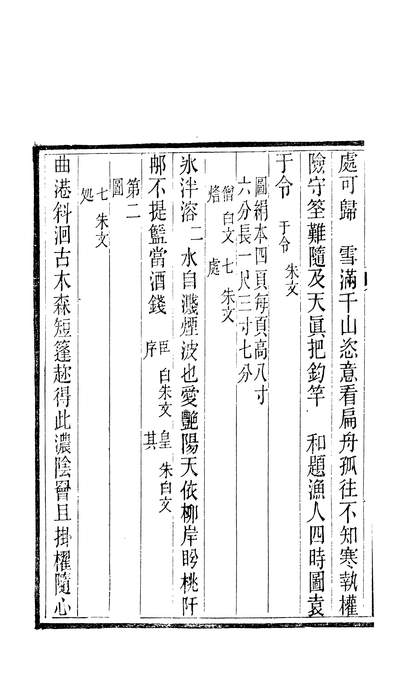 處可歸　雪滿千山恣意看扁舟孤往不知寒執權
險守筌難隨及天眞把鈞竿　和題漁人四時圖袁
于令　于令　朱文
圖絹本四頁每頁高八寸
六分長一尺三寸七分
僧　白文　七　朱文
𤏪　處
氷泮溶二水自濺煙波也愛艷陽天依柳岸盻桃阡
邮不提籃當酒錢　臣　白朱文　皇　朱白文
序　其
第二
圖
七　朱文
処
曲港斜洄古木森短篷趂得此濃陰曾且掛櫂隨心